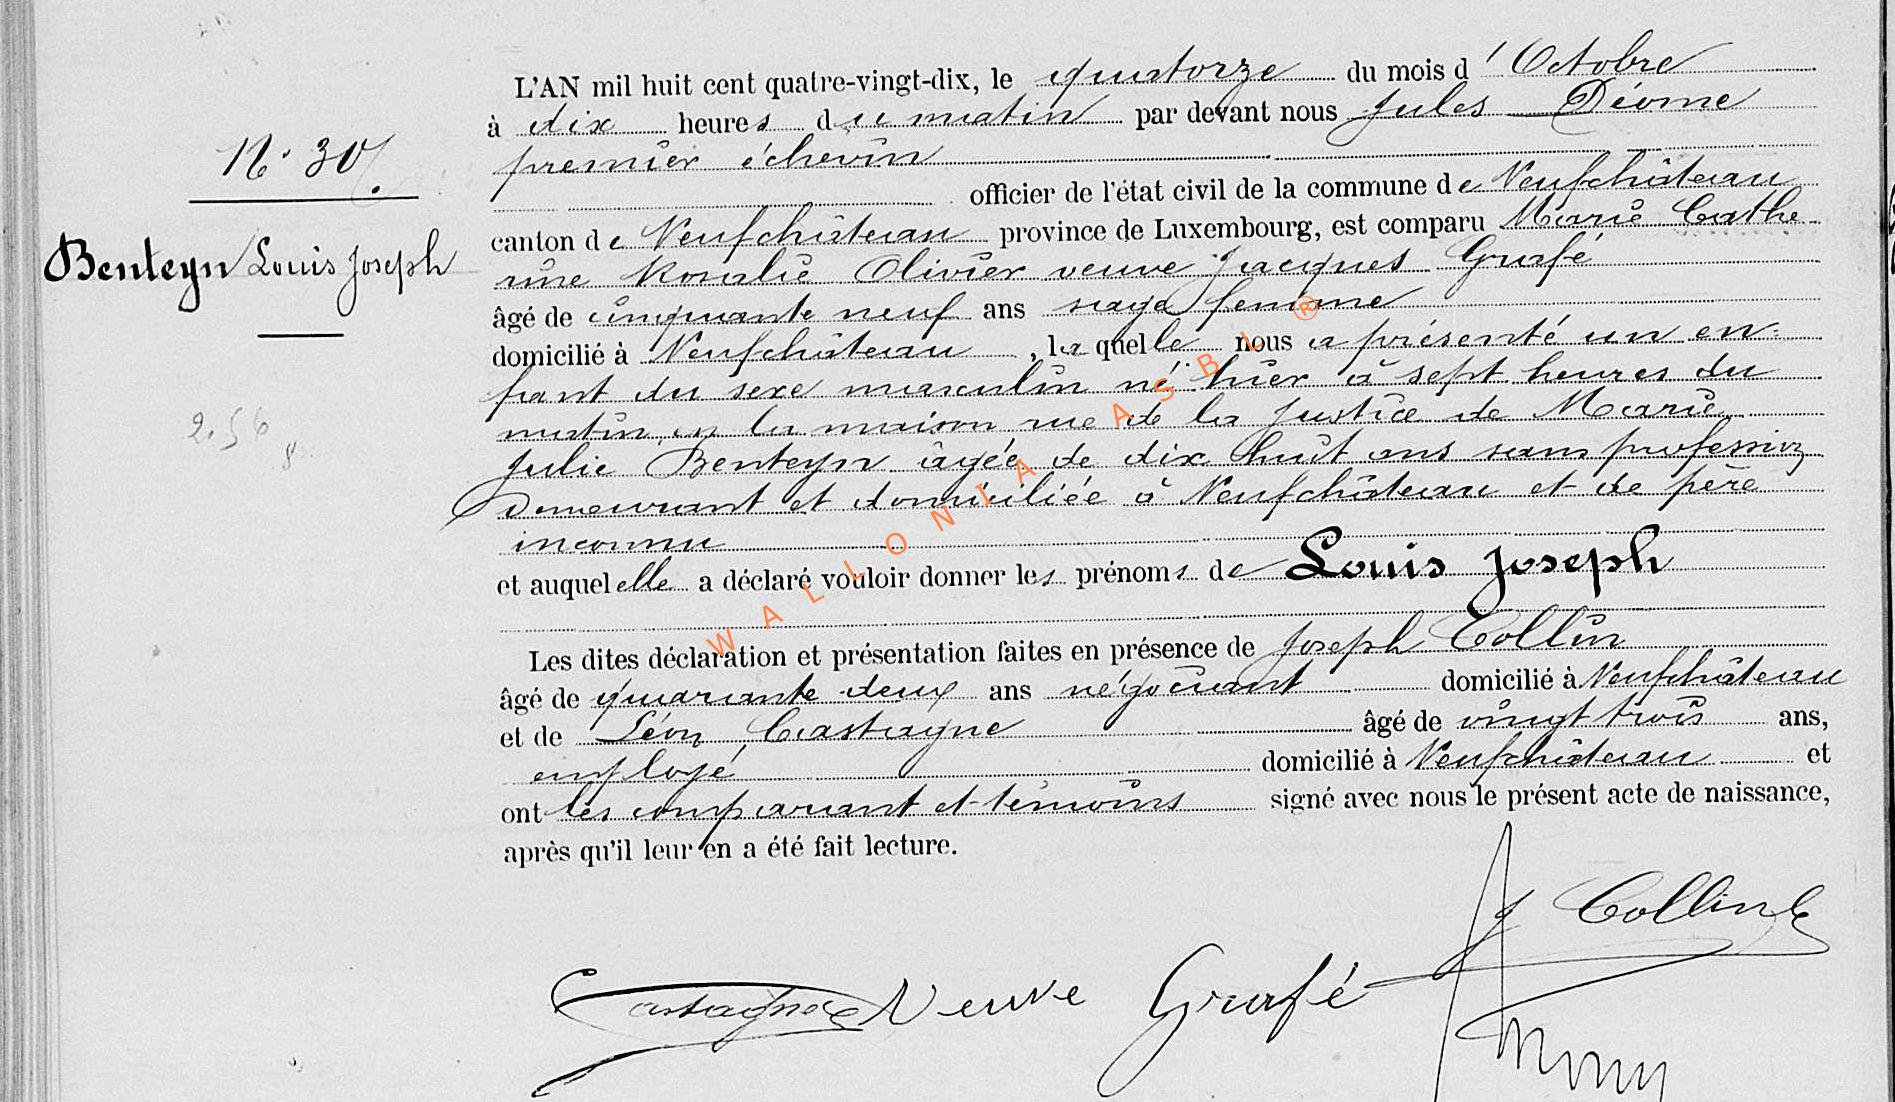 N° 30
Benteyn Louis Joseph
L'AN mil huit cent quatre-vingt-dix, le quatorze du mois d'Octobre
à dix heures du matin par devant nous Jules Déome
premier échevin
officier de l'état civil de la commune de Neufchâteau
canton de Neufchâteau province de Luxembourg, est comparu Marie Cathe
rine Rosalie Olivier veuve Jacques Grafé
âgé de cinquante neuf ans sage femme
domicilié à Neufchâteau, laquelle nous a présenté un en-
fant du sexe masculin né hier à sept heures du
matin, en la maison rue de la Justice de Marie
Julie Benteyn âgée de dix huit ans sans profession
Demeurant et domiciliée à Neufchâteau et de père
inconnu
et auquel elle a déclaré vouloir donner les prénoms de Louis Joseph
Les dites déclaration et présentation faites en présence de Joseph Collin
âgé de quarante deux ans négociant domicilié à Neufchâteau
et de Léon Castagne âgé de vingt trois ans,
employé domicilié à Neufchâteau et
ont les comparant et témoins signé avec nous le présent acte de naissance,
après qu'il leur en a été fait lecture.
J Collin
Castagne Veuve Grafé
WALLONIA ASBL ®